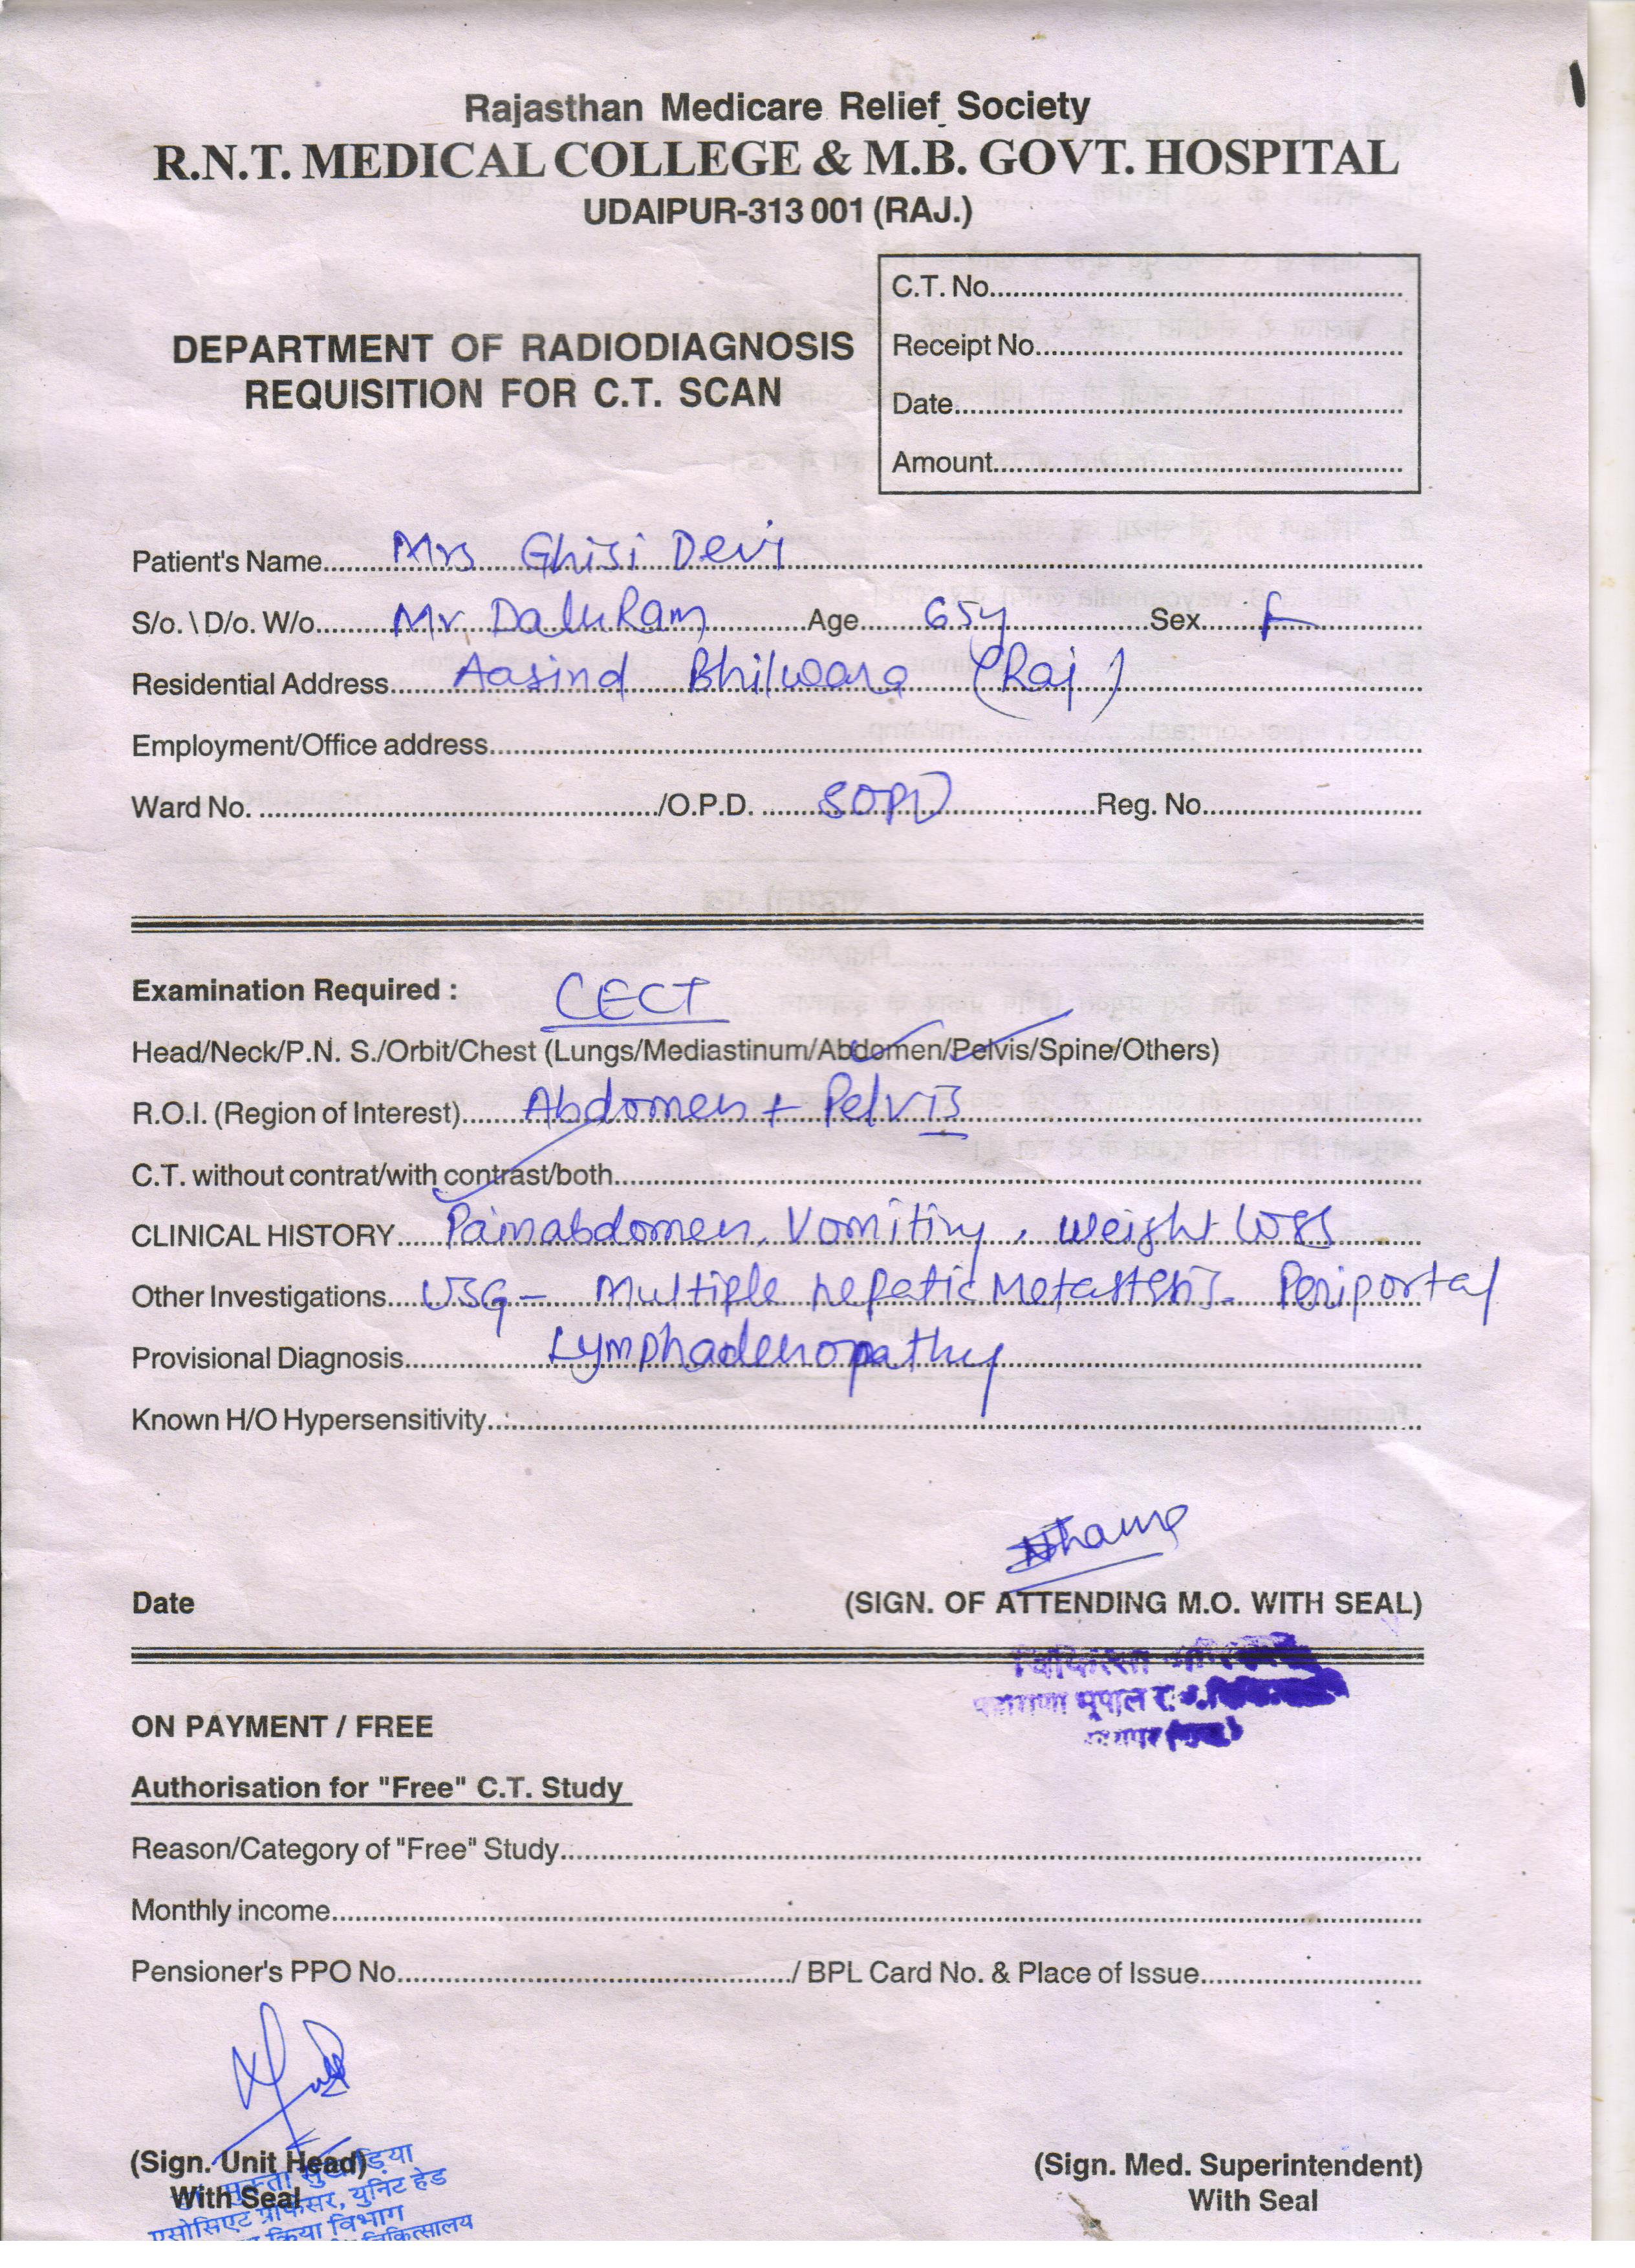 Rajasthan Medicare Relief Society
R.N.T. MEDICAL COLLEGE & M.B. GOVT. HOSPITAL
UDAIPUR-313 001 (RAJ.)
C.T. No.
Receipt No.
Date
Amount
DEPARTMENT OF RADIODIAGNOSIS
REQUISITION FOR C.T. SCAN
Patient's Name Mrs Ghisi Devi
S/o. \ D/o. W/o. Mr. Dalu Ram Age 65y Sex F
Residential Address Aasind Bhilwara (Raj)
Employment/Office address
Ward No. /O.P.D. SOPD Reg. No.
Examination Required : CECT
Head/Neck/P.N. S./Orbit/Chest (Lungs/Mediastinum/Abdomen/Pelvis/Spine/Others)
R.O.I. (Region of Interest) Abdomen + Pelvis
C.T. without contrat/with contrast/both
CLINICAL HISTORY Pain abdomen, Vomiting, weight loss
Other Investigations USG - Multiple hepatic Metastesis. Periportal
Provisional Diagnosis Lymphadenopathy
Known H/O Hypersensitivity
Date (SIGN. OF ATTENDING M.O. WITH SEAL)
चिकित्सा
भूपाल
ON PAYMENT / FREE
Authorisation for "Free" C.T. Study
Reason/Category of "Free" Study
Monthly income
Pensioner's PPO No. / BPL Card No. & Place of Issue
(Sign. Unit Head) (Sign. Med. Superintendent)
With Seal With Seal
एसोसिएट प्रोफेसर, युनिट हेड
क्रिया विभाग
चिकित्सालय